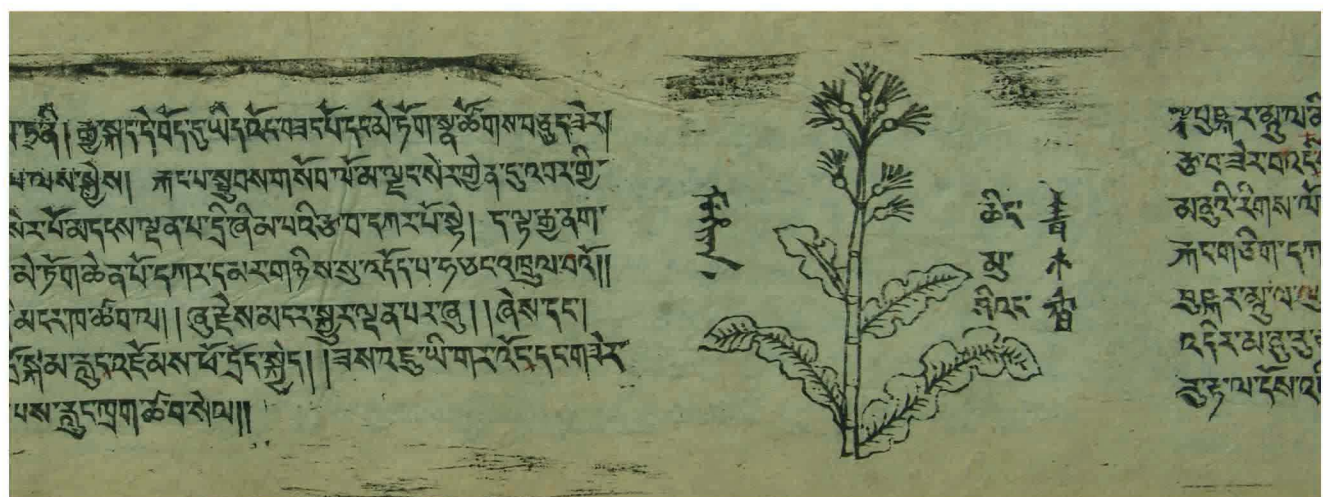 ནི། རྒྱ་སྐད་དེ་བོད་དུ་ཡིད་འོང་བཟང་པོ་དང་མེ་ཏོག་སྣ་ཚོགས་ ཟེར།
པ་ལས་སྐྱེས། རྐང་པ་སྦུབས་ ལོ་མ་ལྗང་སེར་གྱེན་དུ་འབར་གྱི་
སེར་པོ་མདངས་ལྡན་པ་དྲི་ཞིམ་པའི་རྩ་བ་དཀར་པོ་སྟེ། ད་ལྟ་རྒྱ་ནག་
མེ་ཏོག་ཆེན་པོ་དཀར་དམར་གཉིས་སུ་འདོད་པ་ཧ་ཅང་འཁྲུལ་བའོ།།
མངར་ཁ་ཚ་བ་ལ། །ཞུ་རྗེས་མངར་སྐྱུར་ལྡན་པར་ཞུ། །ཞེས་དང་།
རླུང་འཇོམས་ཕོ་དྲོད་སྐྱེད། །ཟས་འཇུ་ཡི་གར་འོང་དང་གཟེར་
པས་རླུང་ཁྲག་ཚ་བ་སེལ།།
ཆིང་
མུ་
ཤིའང་
青
木
香
པུཥྐར་མཱུ་ལ་
རྩ་བ་ཟེར་བ་འདི
མ་ནུའི་རིགས་ལོ
རྐང་གཅིག་དཀ
པུཥྐར་མཱུ་ལ་
འདིར་མ་ནུ་རུ་
རུ་རྟ་ལ་